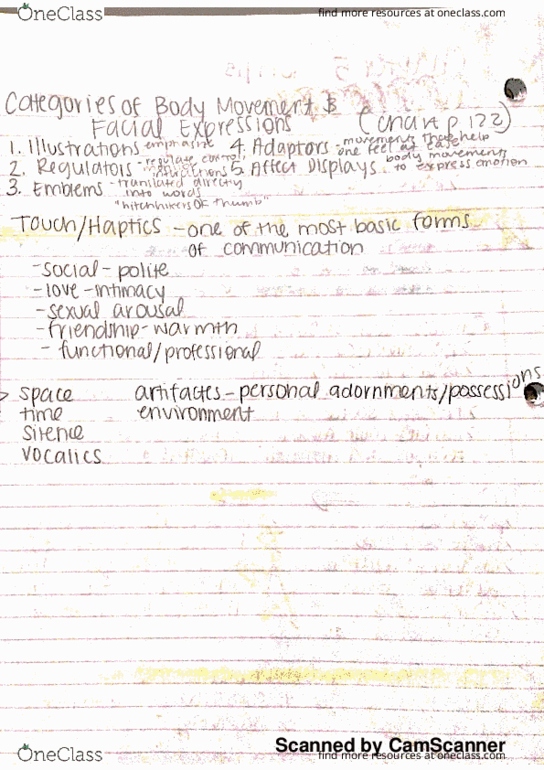 OneClass
find more resources at oneclass.com
Categories of Body Movement &
Facial Expressions
(chart p 122)
1. Illustrations emphasize
4. Adaptors - movements that help one feel at ease
2. Regulators - regulate control,
5. Affect Displays body movements to express emotion
3. Emblems - translated directly
into words
"hitchhikers OK thumb"
Touch/Haptics - one of the most basic forms
of communication
- social - polite
- love - intimacy
- sexual arousal
- friendship - warmth
- functional/professional
> space artifactes - personal adornments/possessions
time environment
silence
vocalics
Scanned by CamScanner
OneClass
find more resources at oneclass.com